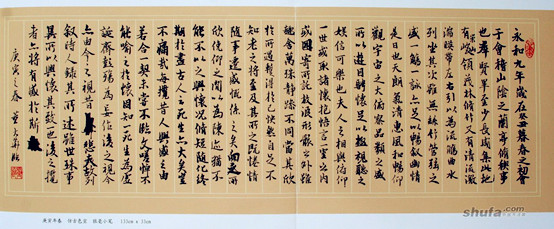 永和九年歲在癸丑暮春之初會
于會稽山陰之蘭亭脩稧事
也群賢畢至少長咸集此地
有崇山峻領茂林脩竹又有清流激
湍暎帶左右引以為流觴曲水
列坐其次雖無絲竹管弦之
盛一觴一詠亦足以暢敘幽情
是日也天朗氣清惠風和暢仰
觀宇宙之大俯察品類之盛
所以遊目騁懷足以極視聽之
娛信可樂也夫人之相與俯仰
一世或取諸懷抱悟言一室之內
或因寄所託放浪形骸之外雖
趣舍萬殊靜躁不同當其欣
於所遇蹔得於己快然自足不
知老之將至及其所之既惓情
隨事遷感慨係之矣向之所
欣俛仰之間以為陳迹猶不
能不以之興懷況脩短隨化終
期於盡古人云死生亦大矣豈
不痛哉每攬昔人興感之由
若合一契未嘗不臨文嗟悼不
能喻之於懷固知一死生為虛
誕齊彭殤為妄作後之視今
亦由今之視昔悲夫故列
敘時人錄其所述雖世殊事
異所以興懷其致一也後之攬
者亦將有感於斯
庚寅之春
庚寅年春 仿古色宣 狼毫小笔 133cm x 35cm
shufa.com